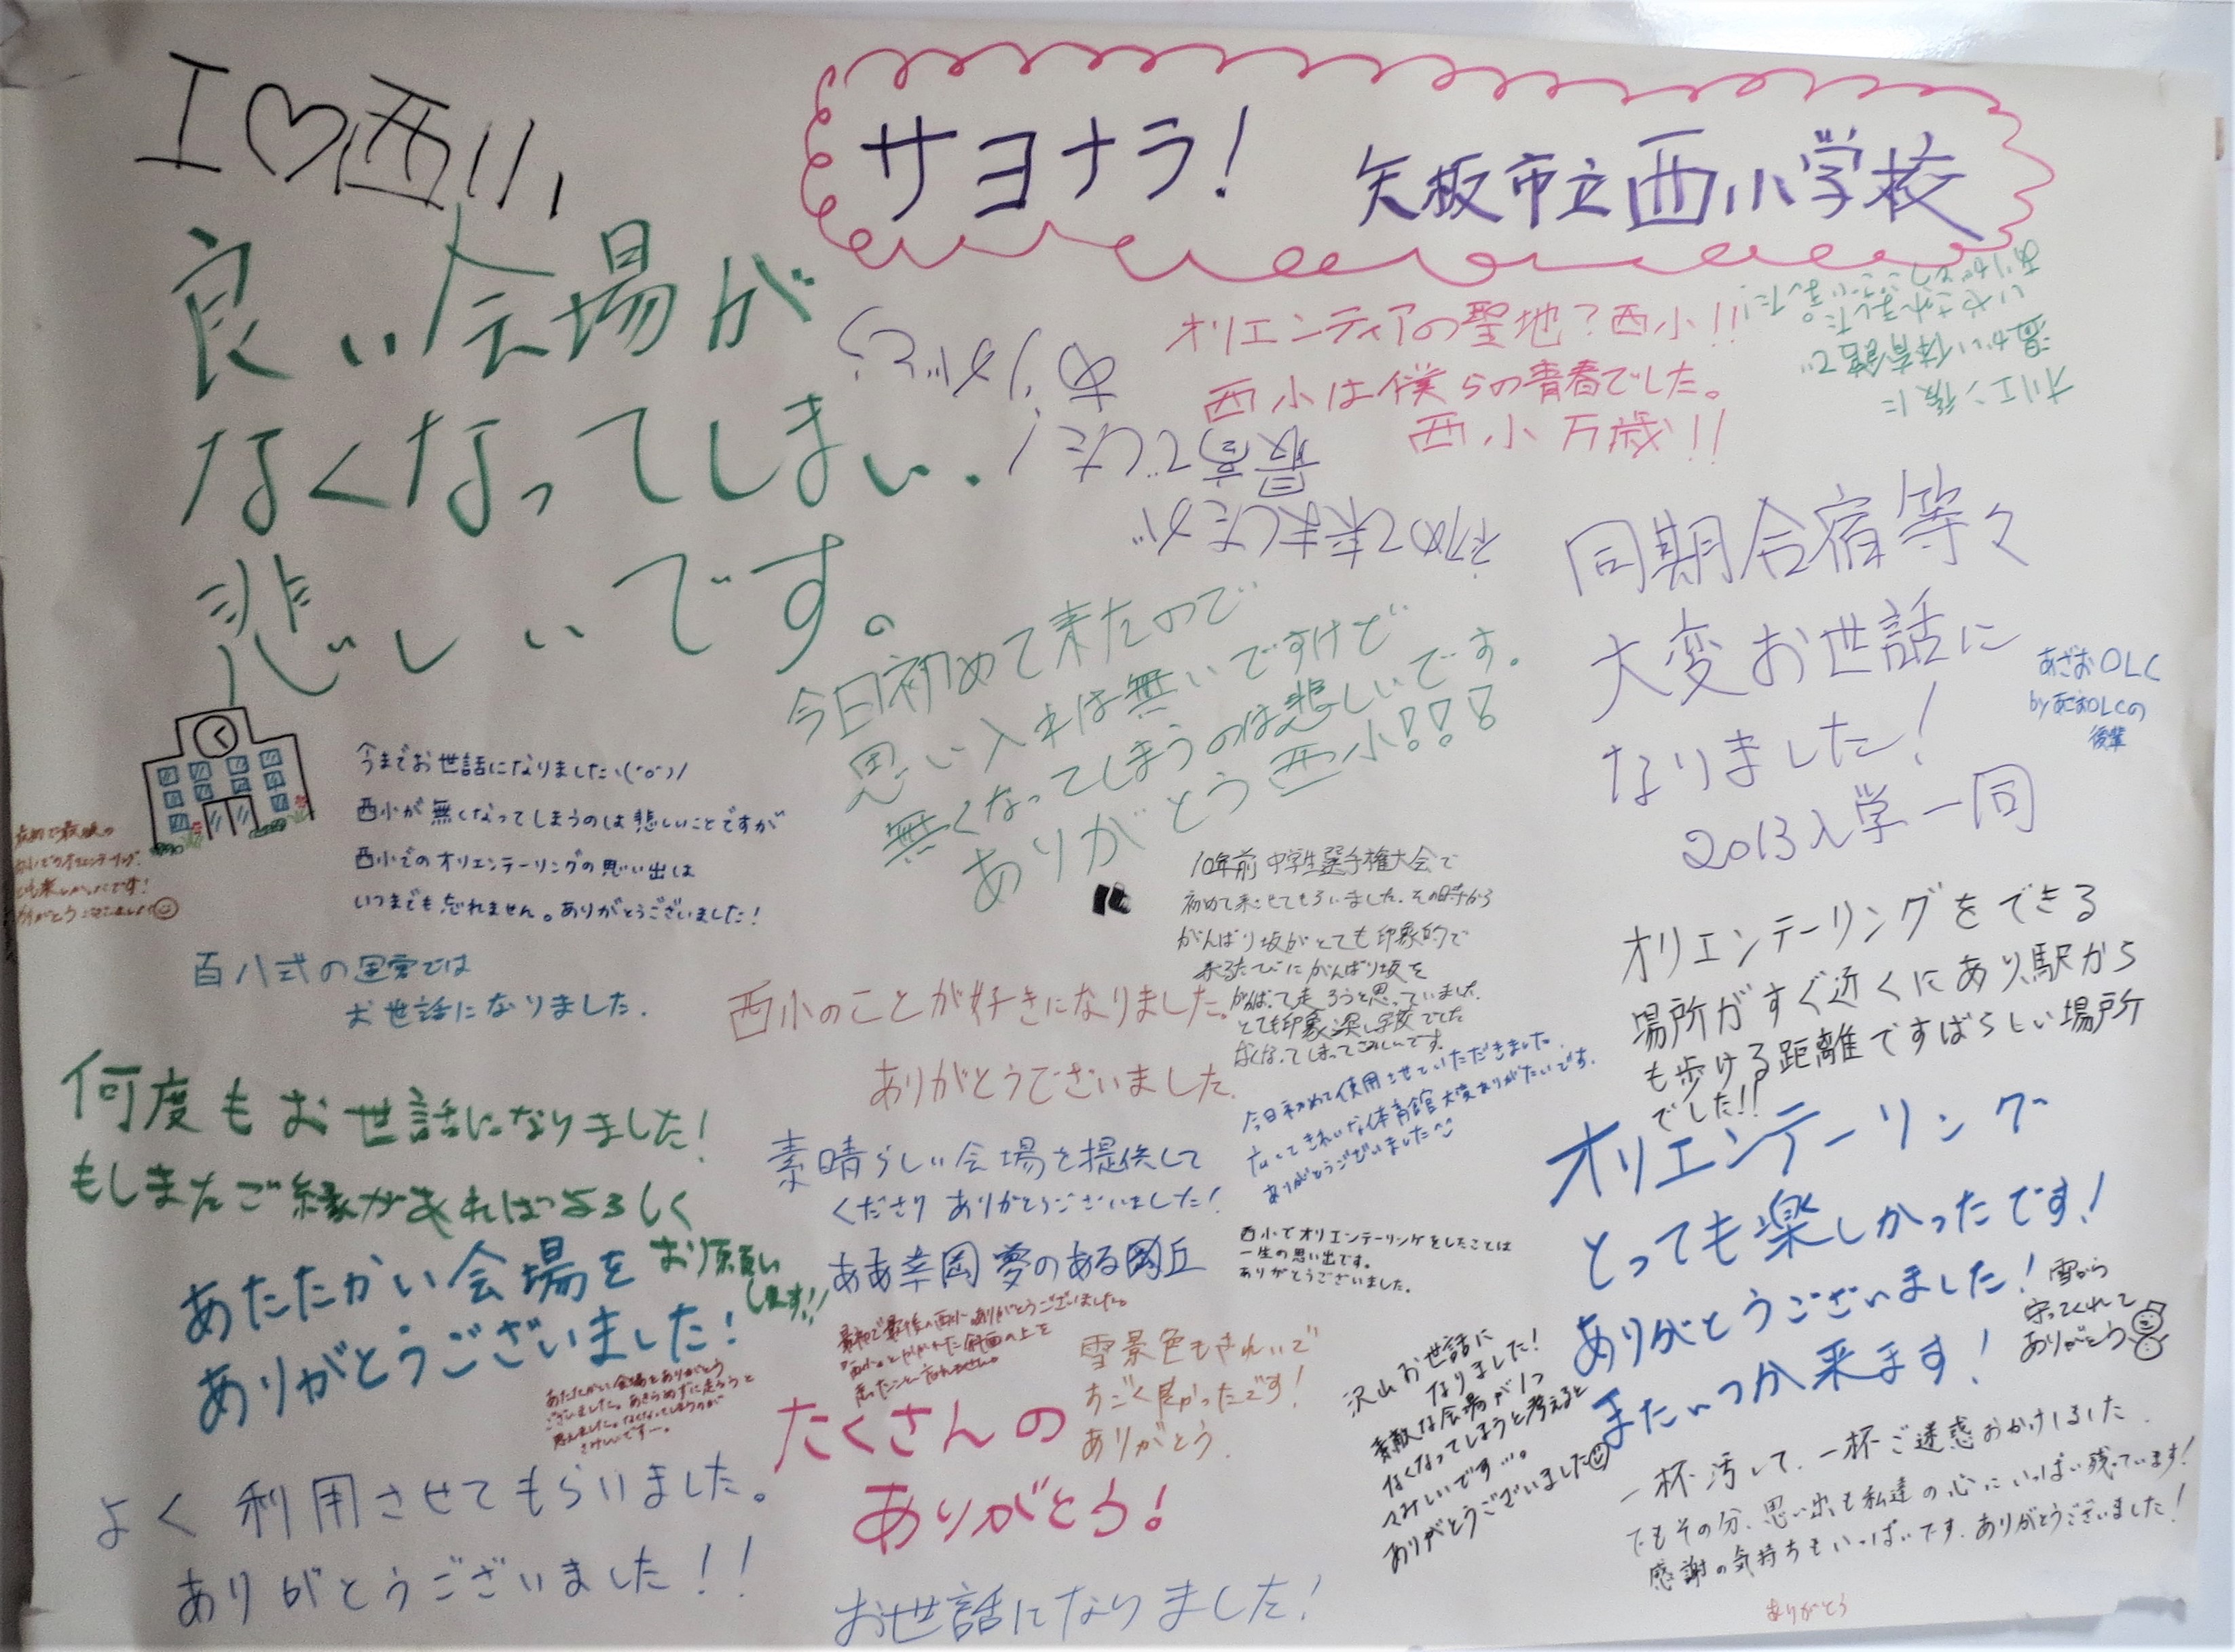 I♡西小
サヨナラ! 矢板市立西小学校
良い会場が
なくなってしまい、
悲しいです。
ありがとう
最高でした!
初めて来ましたが
オリエンティアの聖地?西小!!
西小は僕らの青春でした。
西小万歳!!
オリエン後に
温かい体育館で
いやされました。
ありがとうございました!
同期合宿等々
大変お世話に
なりました!
2013入学一同
あざおOLC
byあざおOLCの
後輩
今日初めて来たので
思い入れは無いですけど
無くなってしまうのは悲しいです。
ありがとう西小!!!
今までお世話になりました
西小が無くなってしまうのは悲しいことですが
西小でのオリエンテーリングの思い出は
いつまでも忘れません。ありがとうございました!
最初で最後の
西小でのオリエンテーリング
とても楽しかったです!
ありがとうございました
百八式の運営では
お世話になりました.
10年前中学生選手権大会で
初めて来させてもらいました.その時から
がんばり坂がとても印象的で
来るたびにがんばり坂を
がんばって走ろうと思っていました.
とても印象深い学校でした
なくなってしまってさみしいです.
西小のことが好きになりました。
ありがとうございました.
オリエンテーリングをできる
場所がすぐ近くにあり、駅から
も歩ける距離ですばらしい場所
でした!!
今日初めて使用させていただきました.
広くてきれいな体育館大変ありがたいです.
ありがとうございました^^
何度もお世話になりました!
もしまたご縁があればよろしく
お願い
します!!
素晴らしい会場を提供して
くださりありがとうございました!
ああ幸岡夢のある岡丘
西小でオリエンテーリングをしたことは
一生の思い出です。
ありがとうございました。
オリエンテーリング
とっても楽しかったです!
ありがとうございました!
またいつか来ます!
雪から
守ってくれて
ありがとう
あたたかい会場を
ありがとうございました!
あたたかい会場をありがとう
ございました。あきらめずに走ろうと
思えました。なくなってしまうのが
さみしいですー。
最初で最後の西小ありがとうございました。
斜面の上を
走ったこと忘れません。
雪景色もきれいで
すごく良かったです!
ありがとう.
たくさんの
ありがとう!
沢山お世話に
なりました!
素敵な会場が1つ
なくなってしまうと考えると
さみしいです…。
ありがとうございました
一杯汚して、一杯ご迷惑おかけしました.
でもその分、思い出も私達の心にいっぱい残っています!
感謝の気持ちもいっぱいです.ありがとうございました!
よく利用させてもらいました。
ありがとうございました!!
お世話になりました!
ありがとう